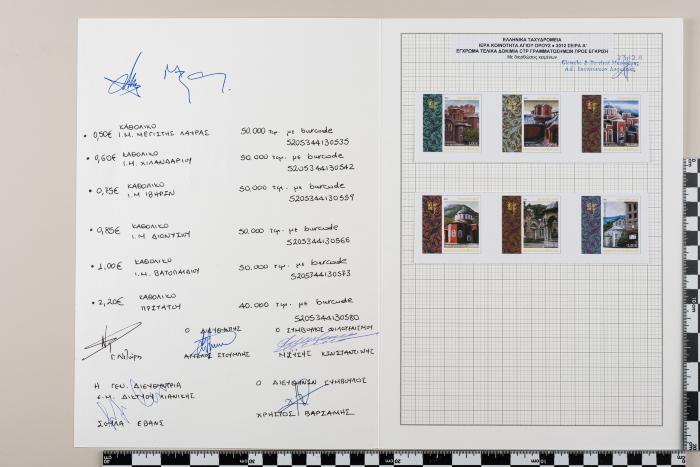 • 0,50€ ΚΑΘΟΛΙΚΟ
Ι.Μ. ΜΕΓΙΣΤΗΣ ΛΑΥΡΑΣ
50.000 τεμ. με barcode
5205344130535
• 0,60€ ΚΑΘΟΛΙΚΟ
Ι.Μ. ΧΙΛΑΝΔΑΡΙΟΥ
50.000 τεμ. με barcode
5205344130542
• 0,75€ ΚΑΘΟΛΙΚΟ
Ι.Μ ΙΒΗΡΩΝ
50.000 τεμ. με barcode
5205344130559
• 0,85€ ΚΑΘΟΛΙΚΟ
Ι.Μ. ΔΙΟΝΥΣΙΟΥ
50.000 τεμ. με barcode
5205344130566
• 1,00€ ΚΑΘΟΛΙΚΟ
Ι.Μ. ΒΑΤΟΠΑΙΔΙΟΥ
50.000 τεμ. με barcode
5205344130573
• 2,20€ ΚΑΘΟΛΙΚΟ
ΠΡΩΤΑΤΟΥ
40.000 τεμ. με barcode
5205344130580
Ο ΔΙΕΥΘΥΝΤΗΣ
Ο ΣΥΜΒΟΥΛΟΣ ΦΙΛΟΤΕΛΙΣΜΟΥ
ΜΩΥΣΗΣ ΚΩΝΣΤΑΝΤΙΝΗΣ
Η ΓΕΝ. ΔΙΕΥΘΥΝΤΡΙΑ
Ε.Μ. ΔΙΚΤΥΟΥ ΛΙΑΝΙΚΗΣ
ΣΟΥΛΑ ΕΒΑΝΣ
Ο ΔΙΕΥΘΥΝΩΝ ΣΥΜΒΟΥΛΟΣ
ΧΡΗΣΤΟΣ ΒΑΡΣΑΜΗΣ
ΕΛΛΗΝΙΚΑ ΤΑΧΥΔΡΟΜΕΙΑ
ΙΕΡΑ ΚΟΙΝΟΤΗΤΑ ΑΓΙΟΥ ΟΡΟΥΣ • 2012 ΣΕΙΡΑ Α'
ΕΓΧΡΩΜΑ ΤΕΛΙΚΑ ΔΟΚΙΜΙΑ ΣΤΡ ΓΡΑΜΜΑΤΟΣΗΜΩΝ ΠΡΟΣ ΕΓΚΡΙΣΗ
Με διορθώσεις κειμένων